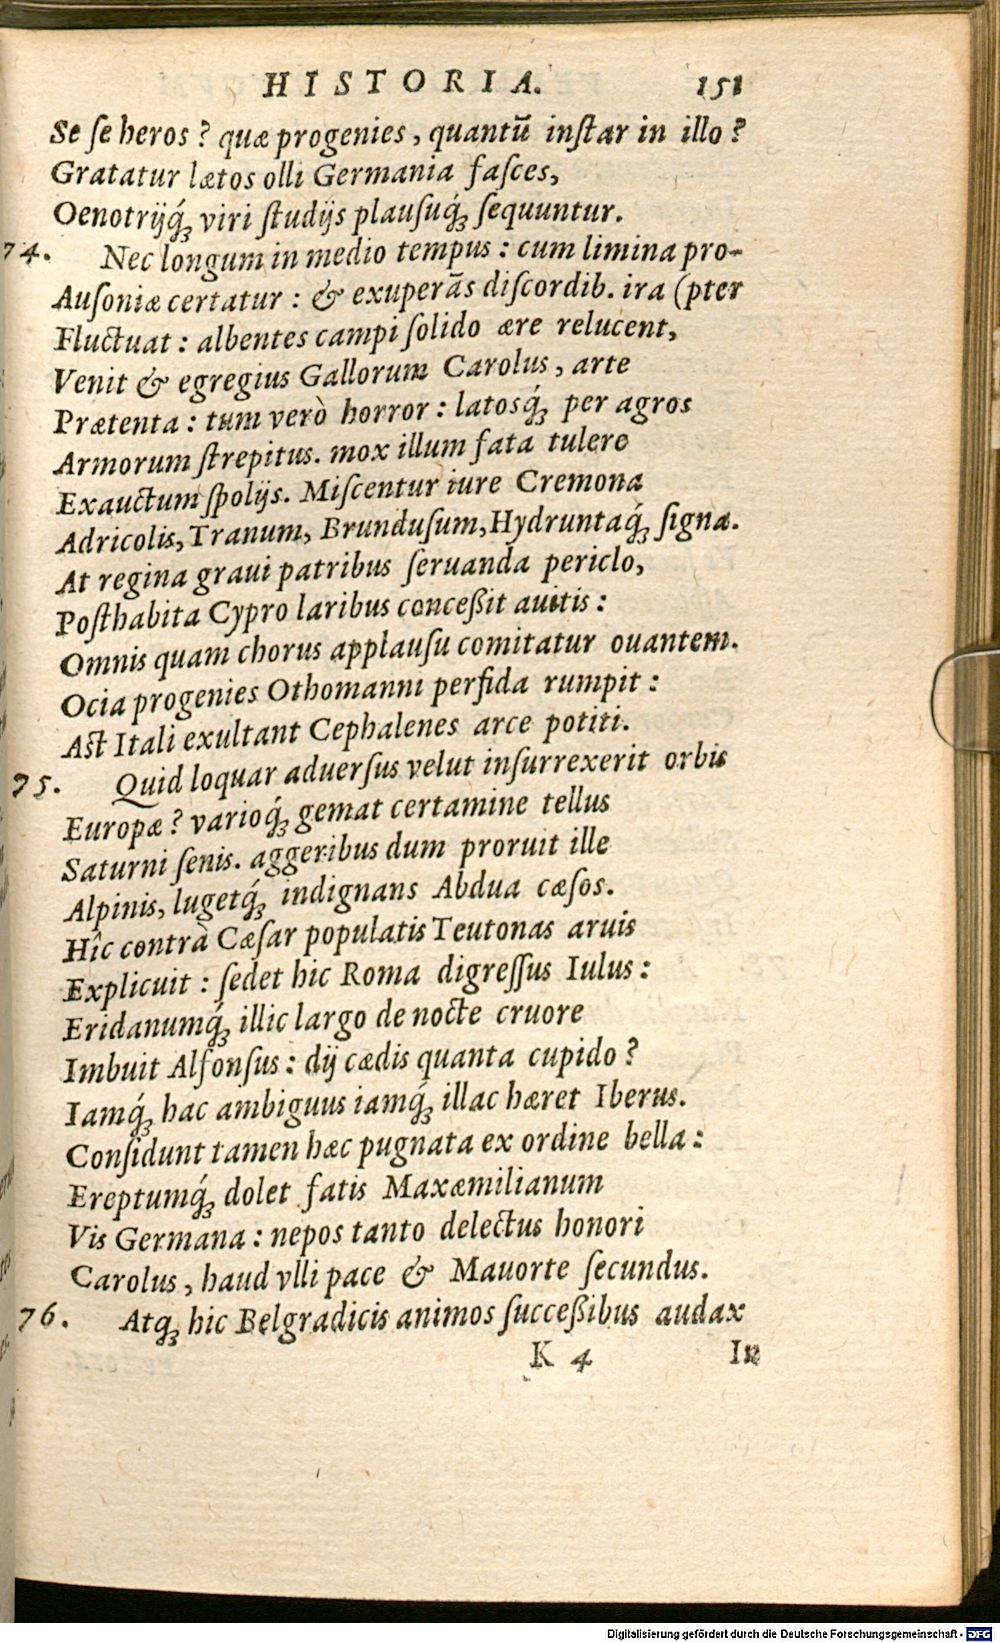 HISTORIA. 151
Se ſe heros? quæ progenies, quantū inſtar in illo?
Gratatur lætos olli Germania faſces,
Oenotrijq́ꝫ viri ſtudijs plauſuq́ꝫ ſequuntur.
74. Nec longum in medio tempus: cum limina pro-
Auſoniæ certatur: & exuperãs diſcordib. ira (pter
Fluctuat: albentes campi ſolido ære relucent,
Venit & egregius Gallorum Carolus, arte
Prætenta: tum verò horror: latosq́ꝫ per agros
Armorum ſtrepitus. mox illum fata tulere
Exauctum ſpolijs. Miſcentur iure Cremona
Adricolis, Tranum, Brunduſum, Hydruntaq́ꝫ ſigna.
At regina graui patribus ſeruanda periclo,
Poſthabita Cypro laribus conceßit auitis:
Omnis quam chorus applauſu comitatur ouantem.
Ocia progenies Othomanni perfida rumpit:
Aſt Itali exultant Cephalenes arce potiti.
75. Quid loquar aduerſus velut inſurrexerit orbis
Europæ? varioq́ꝫ gemat certamine tellus
Saturni ſenis. aggeribus dum proruit ille
Alpinis, lugetq́ꝫ indignans Abdua cæſos.
Hîc contrà Cæſar populatis Teutonas aruis
Explicuit: ſedet hic Roma digreſſus Iulus:
Eridanumq́ꝫ illic largo de nocte cruore
Imbuit Alfonſus: dij cædis quanta cupido?
Iamq́ꝫ hac ambiguus iamq́ꝫ illac hæret Iberus.
Conſidunt tamen hæc pugnata ex ordine bella:
Ereptumq́ꝫ dolet fatis Maxæmilianum
Vis Germana: nepos tanto delectus honori
Carolus, haud vlli pace & Mauorte ſecundus.
76. Atqꝫ hic Belgradicis animos ſucceßibus audax
K 4 In
Digitalisierung gefördert durch die Deutsche Forschungsgemeinschaft - DFG